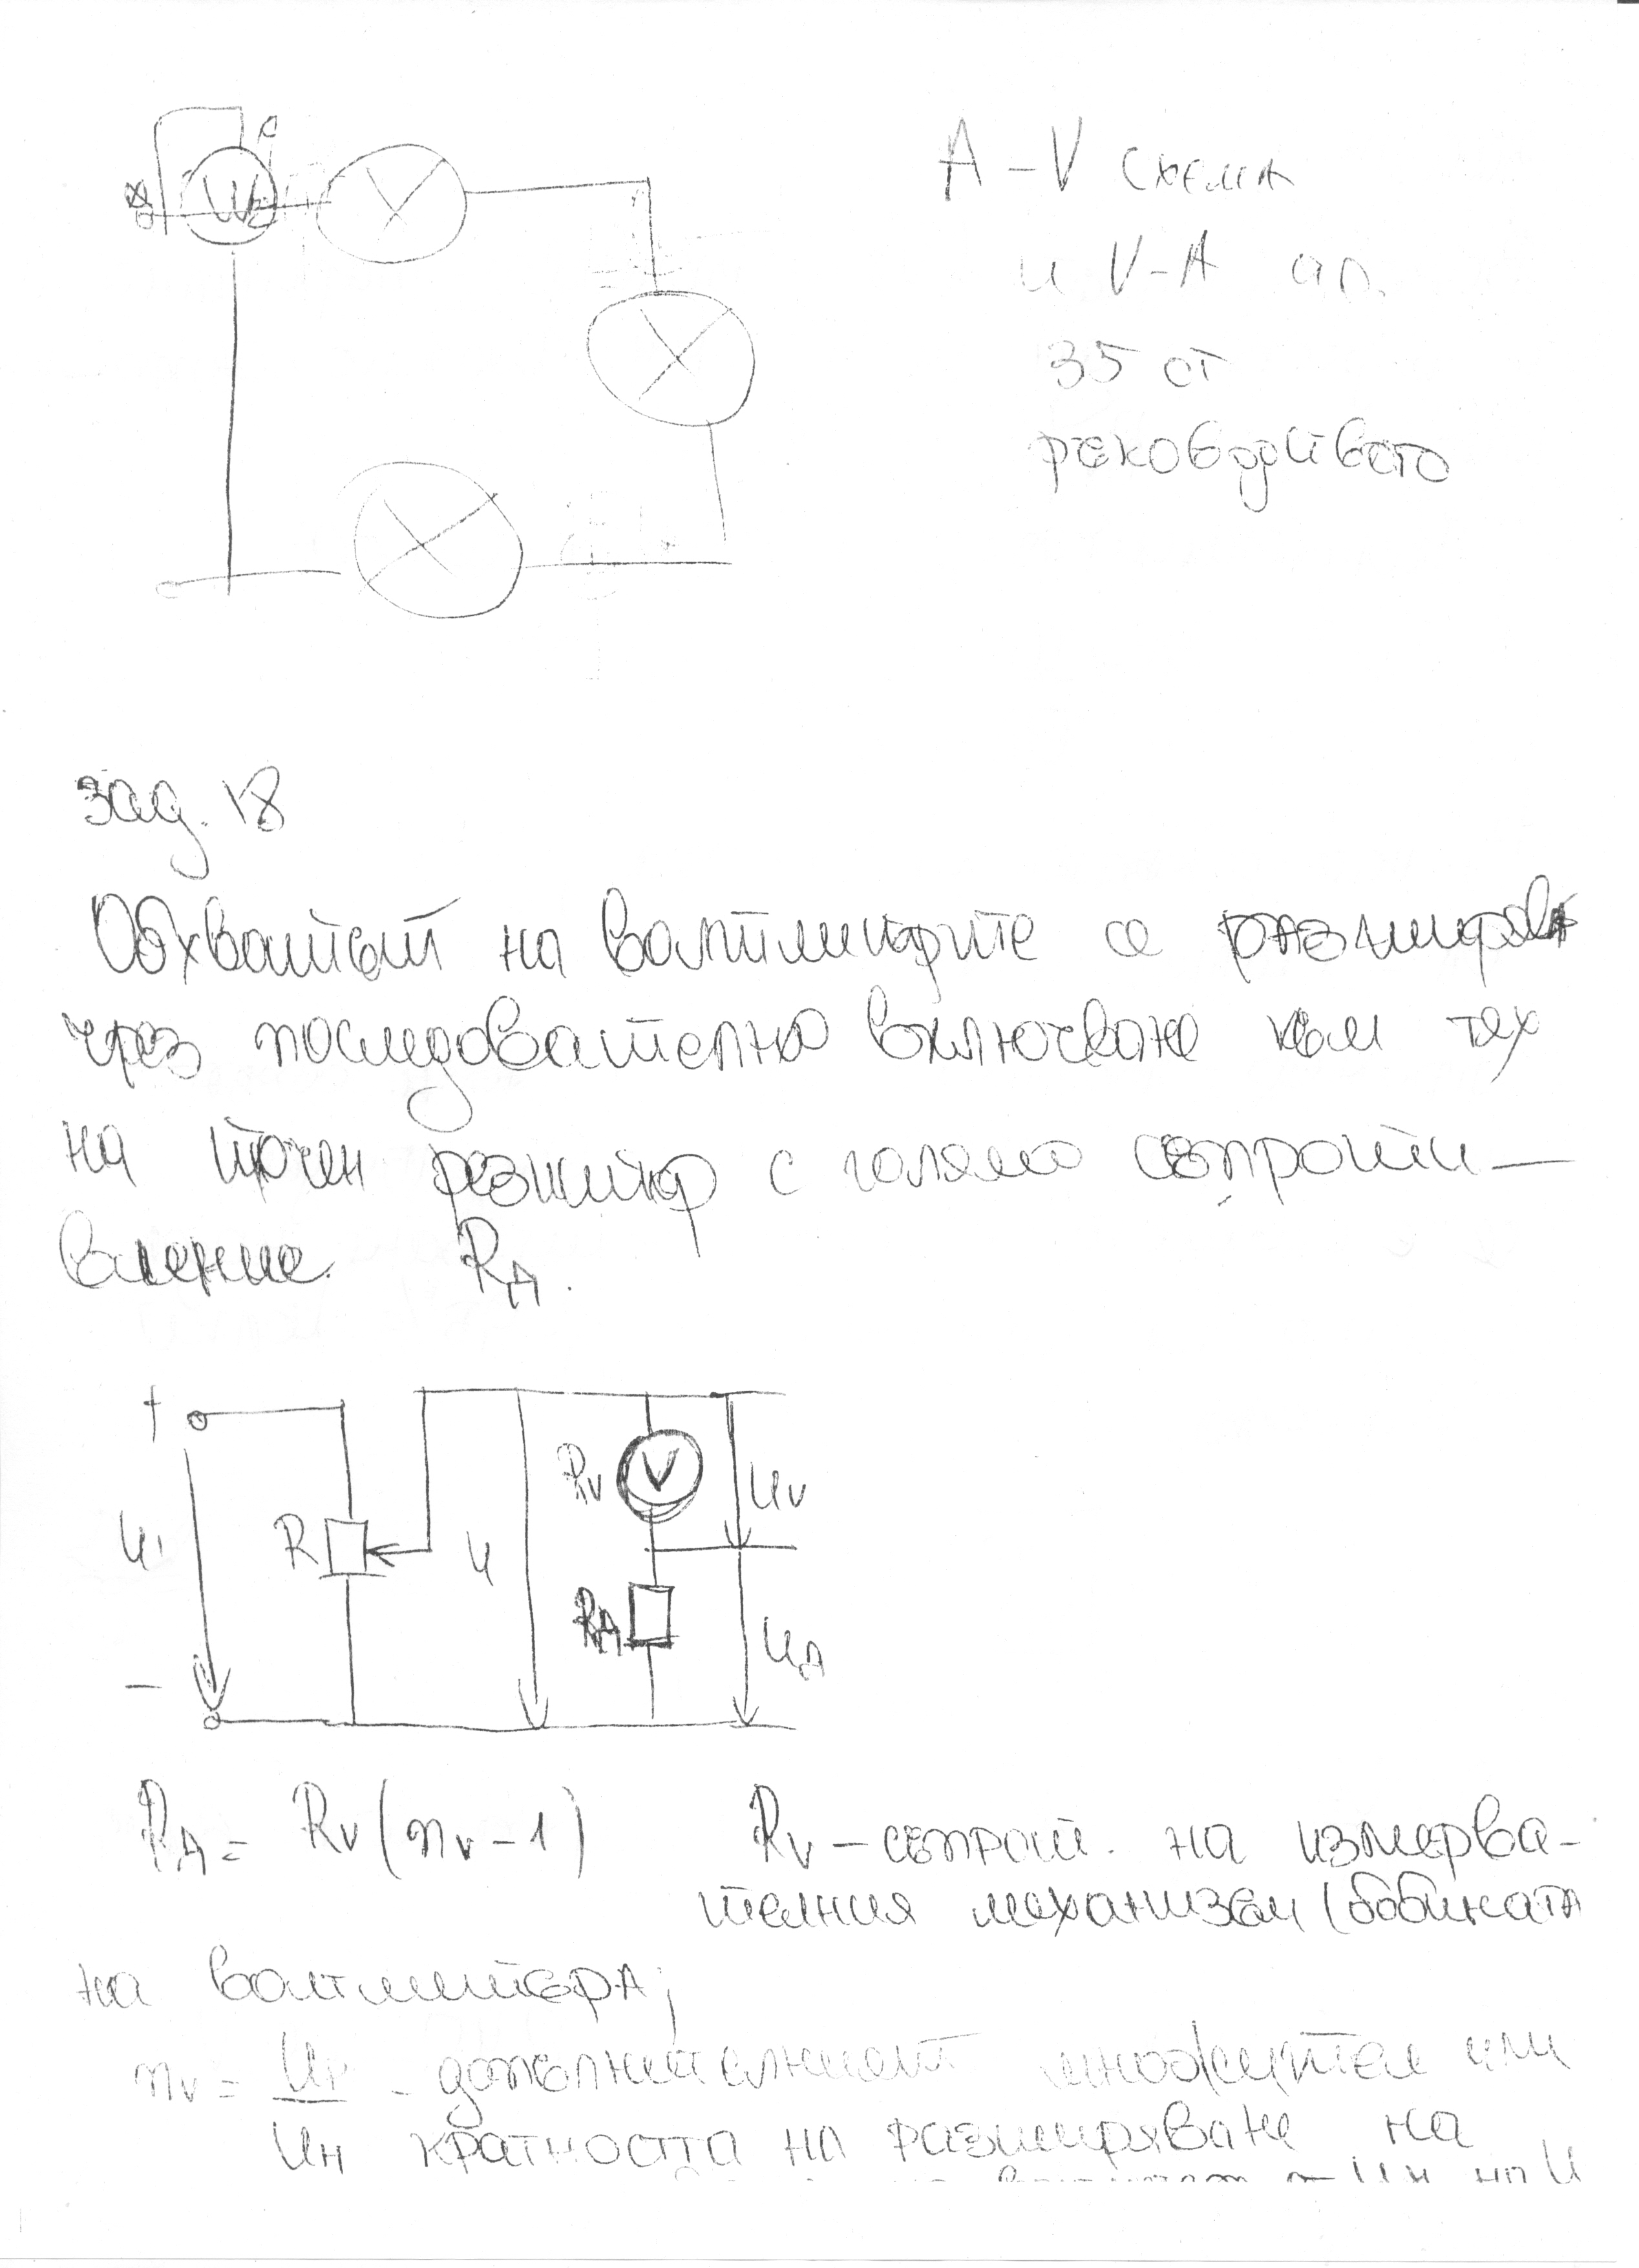 A – V схема
и V – A
35 от
ръководството
W
зад. 18
Обхватът на волтметрите се разширява
чрез последователно включване към тях
на точен резистор с голямо съпроти –
вление RД.
+
U1
R
U
RV
V
UV
RД
UД
–
RД = RV (nV – 1)
RV – съпрот. на измерва –
телния механизъм (бобината
на волтметъра;
nV = / Uн – допълнителният множител или
кратността на разширяване на